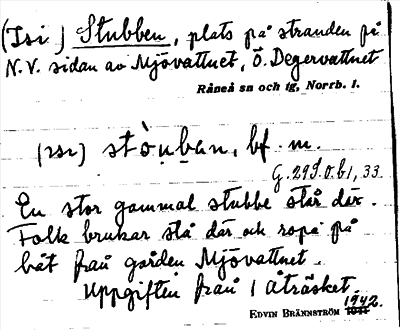 (Isi) Stubben, plats på stranden på
N.V. sidan av Mjövattnet, Ö. Degervattnet
Råneå sn och tg, Norrb. l.
(ısı) stò̱u̱ba̱n, bf. m.
G. 29 S. o. b1, 33.
En stor gammal stubbe står där.
Folk brukar stå där och ropa på
båt från gården Mjövattnet.
Uppgiften från 1 Åträsket.
EDVIN BRÄNNSTRÖM 1942.